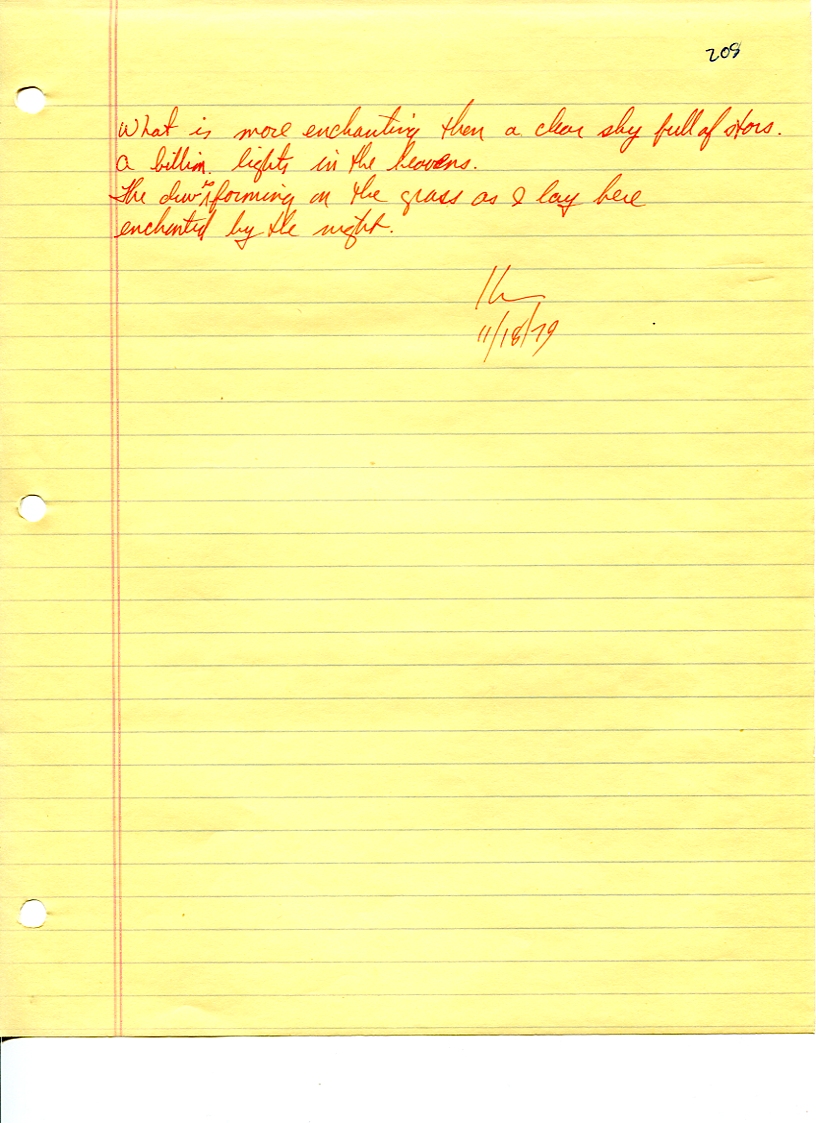 208
What is more enchanting then a clear sky full of stars.
a billion lights in the heavens.
The dew is forming on the grass as I lay here
enchanted by the night.
11/18/79